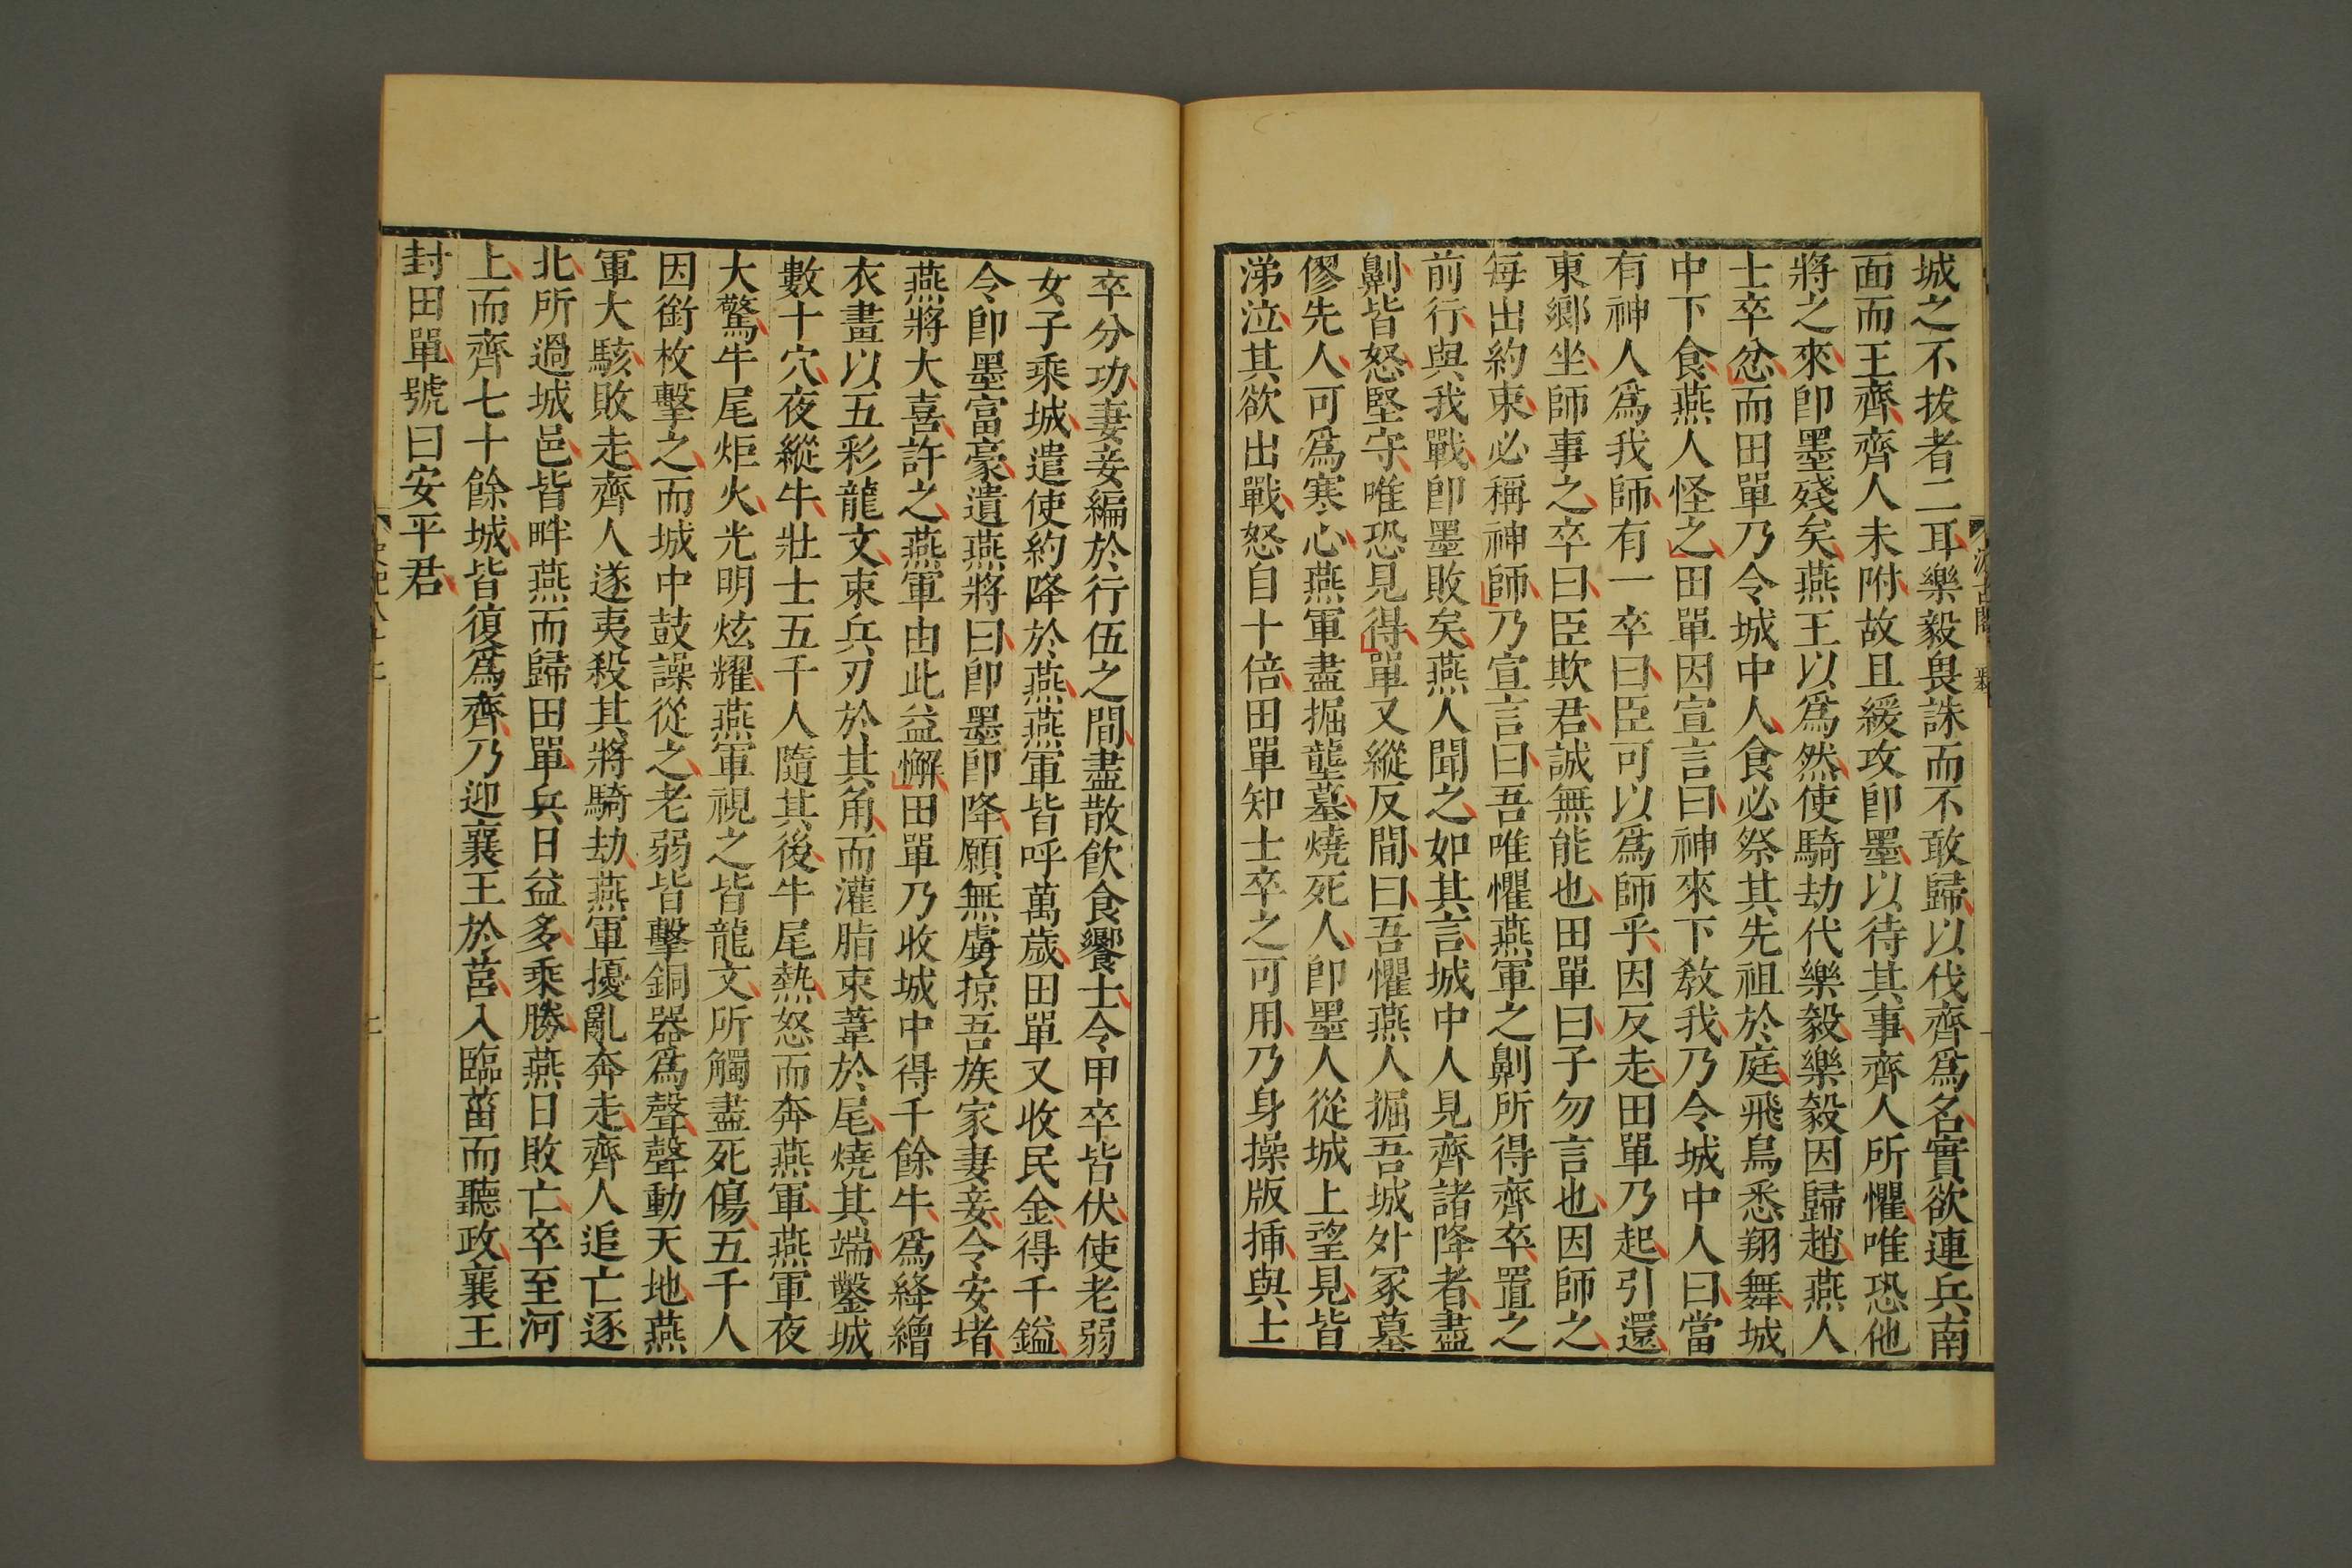 城之不拔者二耳樂毅畏誅而不敢歸以伐齊爲名實欲連兵南
面而王齊齊人未附故且緩攻卽墨以待其事齊人所懼唯恐他
將之來卽墨殘矣燕王以爲然使騎劫代樂毅樂毅因歸趙燕人
士卒忿而田單乃令城中人食必祭其先祖於庭飛鳥悉翔舞城
中下食燕人怪之田單因宣言曰神來下敎我乃令城中人曰當
有神人爲我師有一卒曰臣可以爲師乎因反走田單乃起引還
東鄉坐師事之卒曰臣欺君誠無能也田單曰子勿言也因師之
每出約束必稱神師乃宣言曰吾唯懼燕軍之劓所得齊卒置之
前行與我戰卽墨敗矣燕人聞之如其言城中人見齊諸降者盡
劓皆怒堅守唯恐見得單又縱反間曰吾懼燕人掘吾城外冢墓
僇先人可爲寒心燕軍盡掘壟墓燒死人卽墨人從城上望見皆
涕泣其欲出戰怒自十倍田單知士卒之可用乃身操版揷與士
卒分功妻妾編於行伍之間盡散飮食饗士令甲卒皆伏使老弱
女子乘城遣使約降於燕燕軍皆呼萬歲田單又收民金得千鎰
令卽墨富豪遺燕將曰卽墨卽降願無虜掠吾族家妻妾令安堵
燕將大喜許之燕軍由此益懈田單乃收城中得千餘牛爲絳繒
衣畫以五彩龍文束兵刃於其角而灌脂束葦於尾燒其端鑿城
數十穴夜縱牛壯士五千人隨其後牛尾熱怒而奔燕軍燕軍夜
大驚牛尾炬火光明炫耀燕軍視之皆龍文所觸盡死傷五千人
因銜枚擊之而城中鼓譟從之老弱皆擊銅器爲聲聲動天地燕
軍大駭敗走齊人遂夷殺其將騎劫燕軍擾亂奔走齊人追亡逐
北所過城邑皆畔燕而歸田單兵日益多乘勝燕日敗亡卒至河
上而齊七十餘城皆復爲齊乃迎襄王於莒入臨菑而聽政襄王
封田單號曰安平君